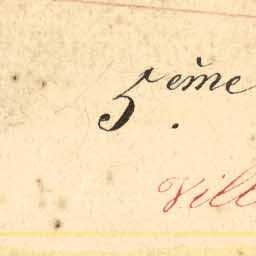 5.ème
Vill